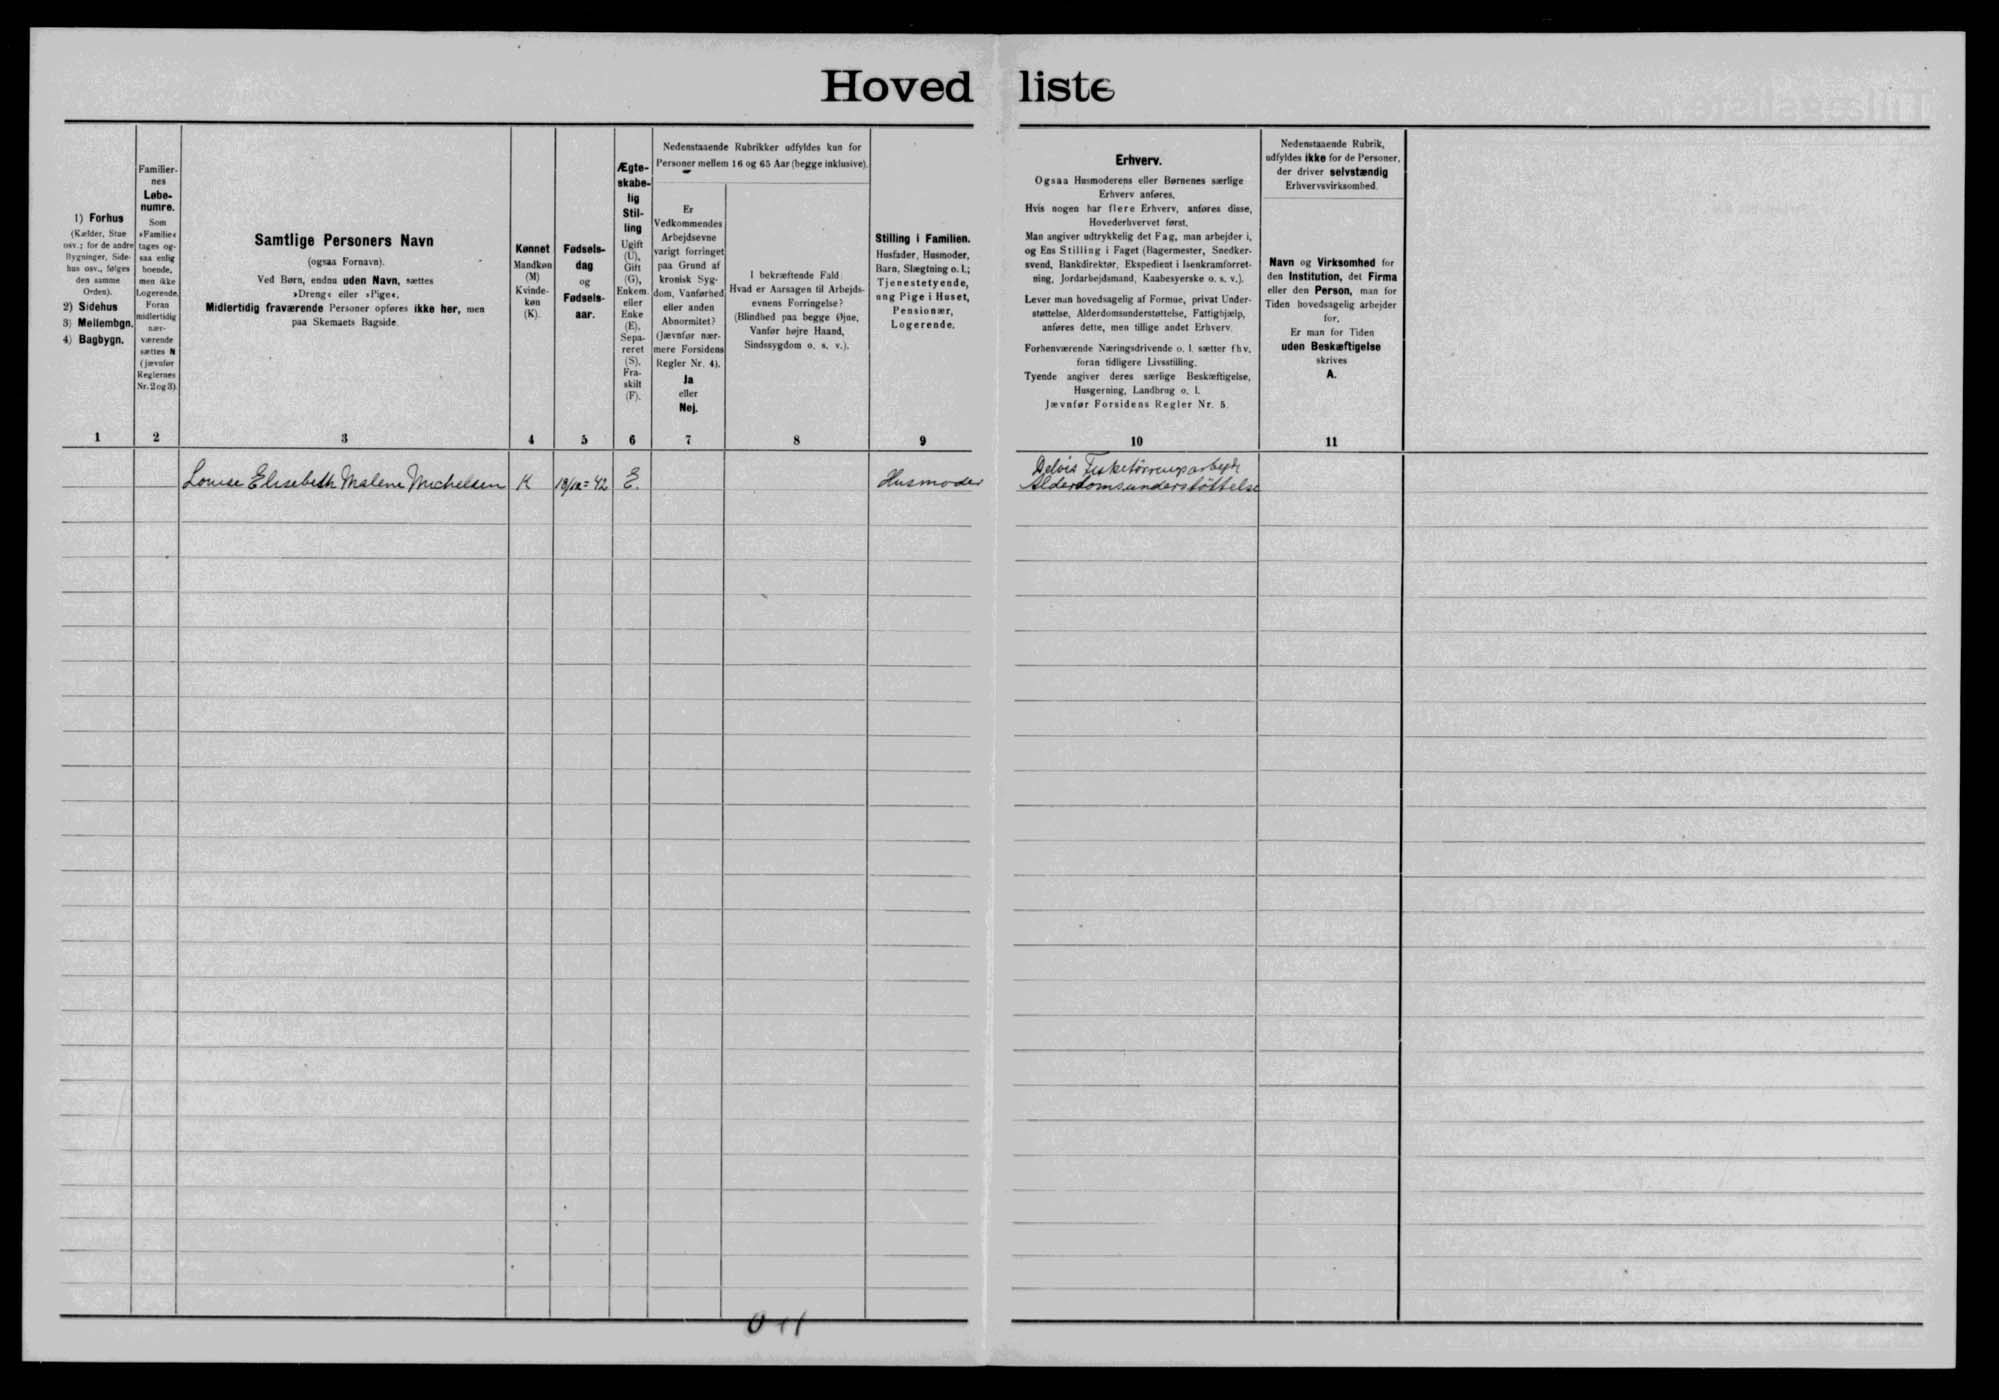 Hovedliste
1) Forhus
(Kælder, Stue
osv.; for de andre
Bygninger, Side-
hus osv., følges
den samme
Orden).
2) Sidehus
3) Mellembgn.
4) Bagbygn.
Familier-
nes
Løbe-
numre.
Som
»Familie«
tages og-
saa enlig
boende,
men ikke
Logerende.
Foran
midlertidig
nær-
værende
sættes N
(jævnfør
Reglernes
Nr. 2 og 3).
Samtlige Personers Navn
(ogsaa Fornavn).
Ved Børn, endnu uden Navn, sættes
»Dreng« eller »Pige«.
Midlertidig fraværende Personer opføres ikke her, men
paa Skemaets Bagside.
Kønnet
Mandkøn
(M)
Kvinde-
køn
(K).
Fødsels-
dag
og
Fødsels-
aar.
Ægte-
skabe-
lig
Stil-
ling
Ugift
(U),
Gift
(G),
Enkem.
eller
Enke
(E),
Sepa-
reret
(S),
Fra-
skilt
(F).
Nedenstaaende Rubrikker udfyldes kun for
Personer mellem 16 og 65 Aar (begge inklusive).
Er
Vedkommendes
Arbejdsevne
varigt forringet
paa Grund af
kronisk Syg-
dom, Vanførhed
eller anden
Abnormitet?
(Jævnfør nær-
mere Forsidens
Regler Nr. 4).
Ja
eller
Nej.
I bekræftende Fald:
Hvad er Aarsagen til Arbejds-
evnens Forringelse?
(Blindhed paa begge Øjne,
Vanfør højre Haand,
Sindssygdom o. s. v.).
Stilling i Familien.
Husfader, Husmoder,
Barn, Slægtning o. l.;
Tjenestetyende,
ung Pige i Huset,
Pensionær,
Logerende.
Erhverv.
Ogsaa Husmoderens eller Børnenes særlige
Erhverv anføres.
Hvis nogen har flere Erhverv, anføres disse,
Hovederhvervet først.
Man angiver udtrykkelig det Fag, man arbejder i,
og Ens Stilling i Faget (Bagermester, Snedker-
svend, Bankdirektør, Ekspedient i Isenkramforret-
ning, Jordarbejdsmand, Kaabesyerske o. s. v.).
Lever man hovedsagelig af Formue, privat Under-
støttelse, Alderdomsunderstøttelse, Fattighjælp,
anføres dette, men tillige andet Erhverv.
Forhenværende Næringsdrivende o. l. sætter fhv.
foran tidligere Livsstilling.
Tyende angiver deres særlige Beskæftigelse,
Husgerning, Landbrug o. l.
Jævnfør Forsidens Regler Nr. 5.
Nedenstaaende Rubrik,
udfyldes ikke for de Personer,
der driver selvstændig
Erhvervsvirksomhed.
Navn og Virksomhed for
den Institution, det Firma
eller den Person, man for
Tiden hovedsagelig arbejder
for.
Er man for Tiden
uden Beskæftigelse
skrives
A.
1 2 3 4 5 6 7 8 9 10 11
Louise Elisebeth Malene Michelsen K 18/12=42 E. Husmoder Delvis Fisketørringsarbejde
Alderdomsunderstøttelse